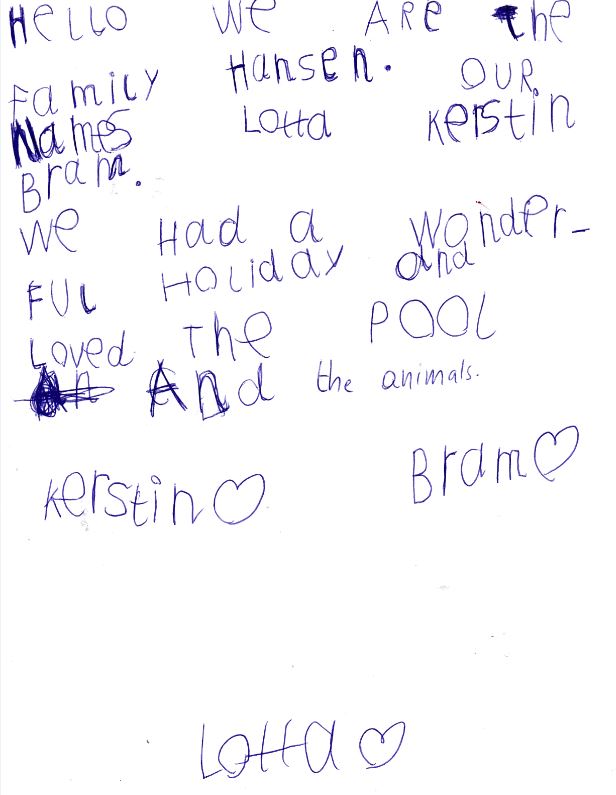 HELLO WE ARE the
FamiLY Hansen. OUR
Names Lotta Kerstin
Bram.
We Had a Wonder-
FUL HOLiday and
Loved The POOL
And the animals.
Kerstin ♡ Bram ♡
Lotta ♡